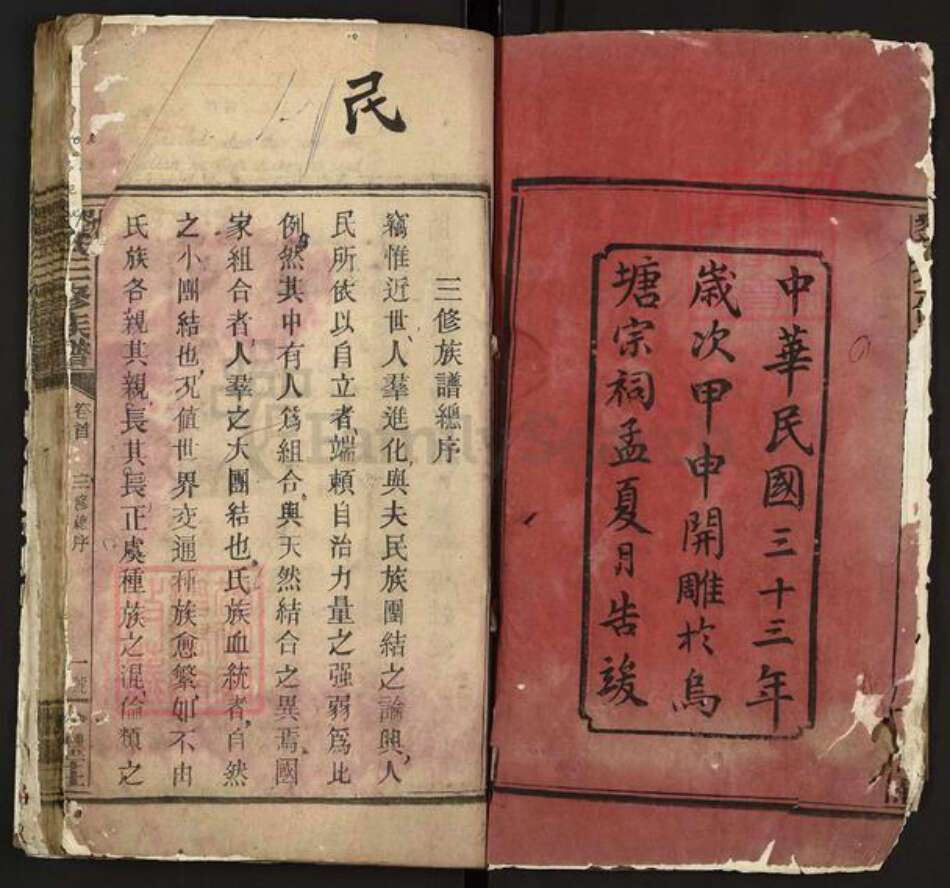 中華民國三十三年
歲次甲申開雕於烏
塘宗祠孟夏月告竣
民
三修族譜總序
竊惟近世人羣進化與夫民族團結之論興人
民所依以自立者端賴自治力量之强弱爲比
例然其中有人爲組合與天然結合之異焉國
家組合者人羣之大團結也氏族血統者自然
之小團結也况值世界交通種族愈繁如不由
氏族各親其親長其長正虞種族之混倫類之
三修族譜
卷首
三修總序
一號